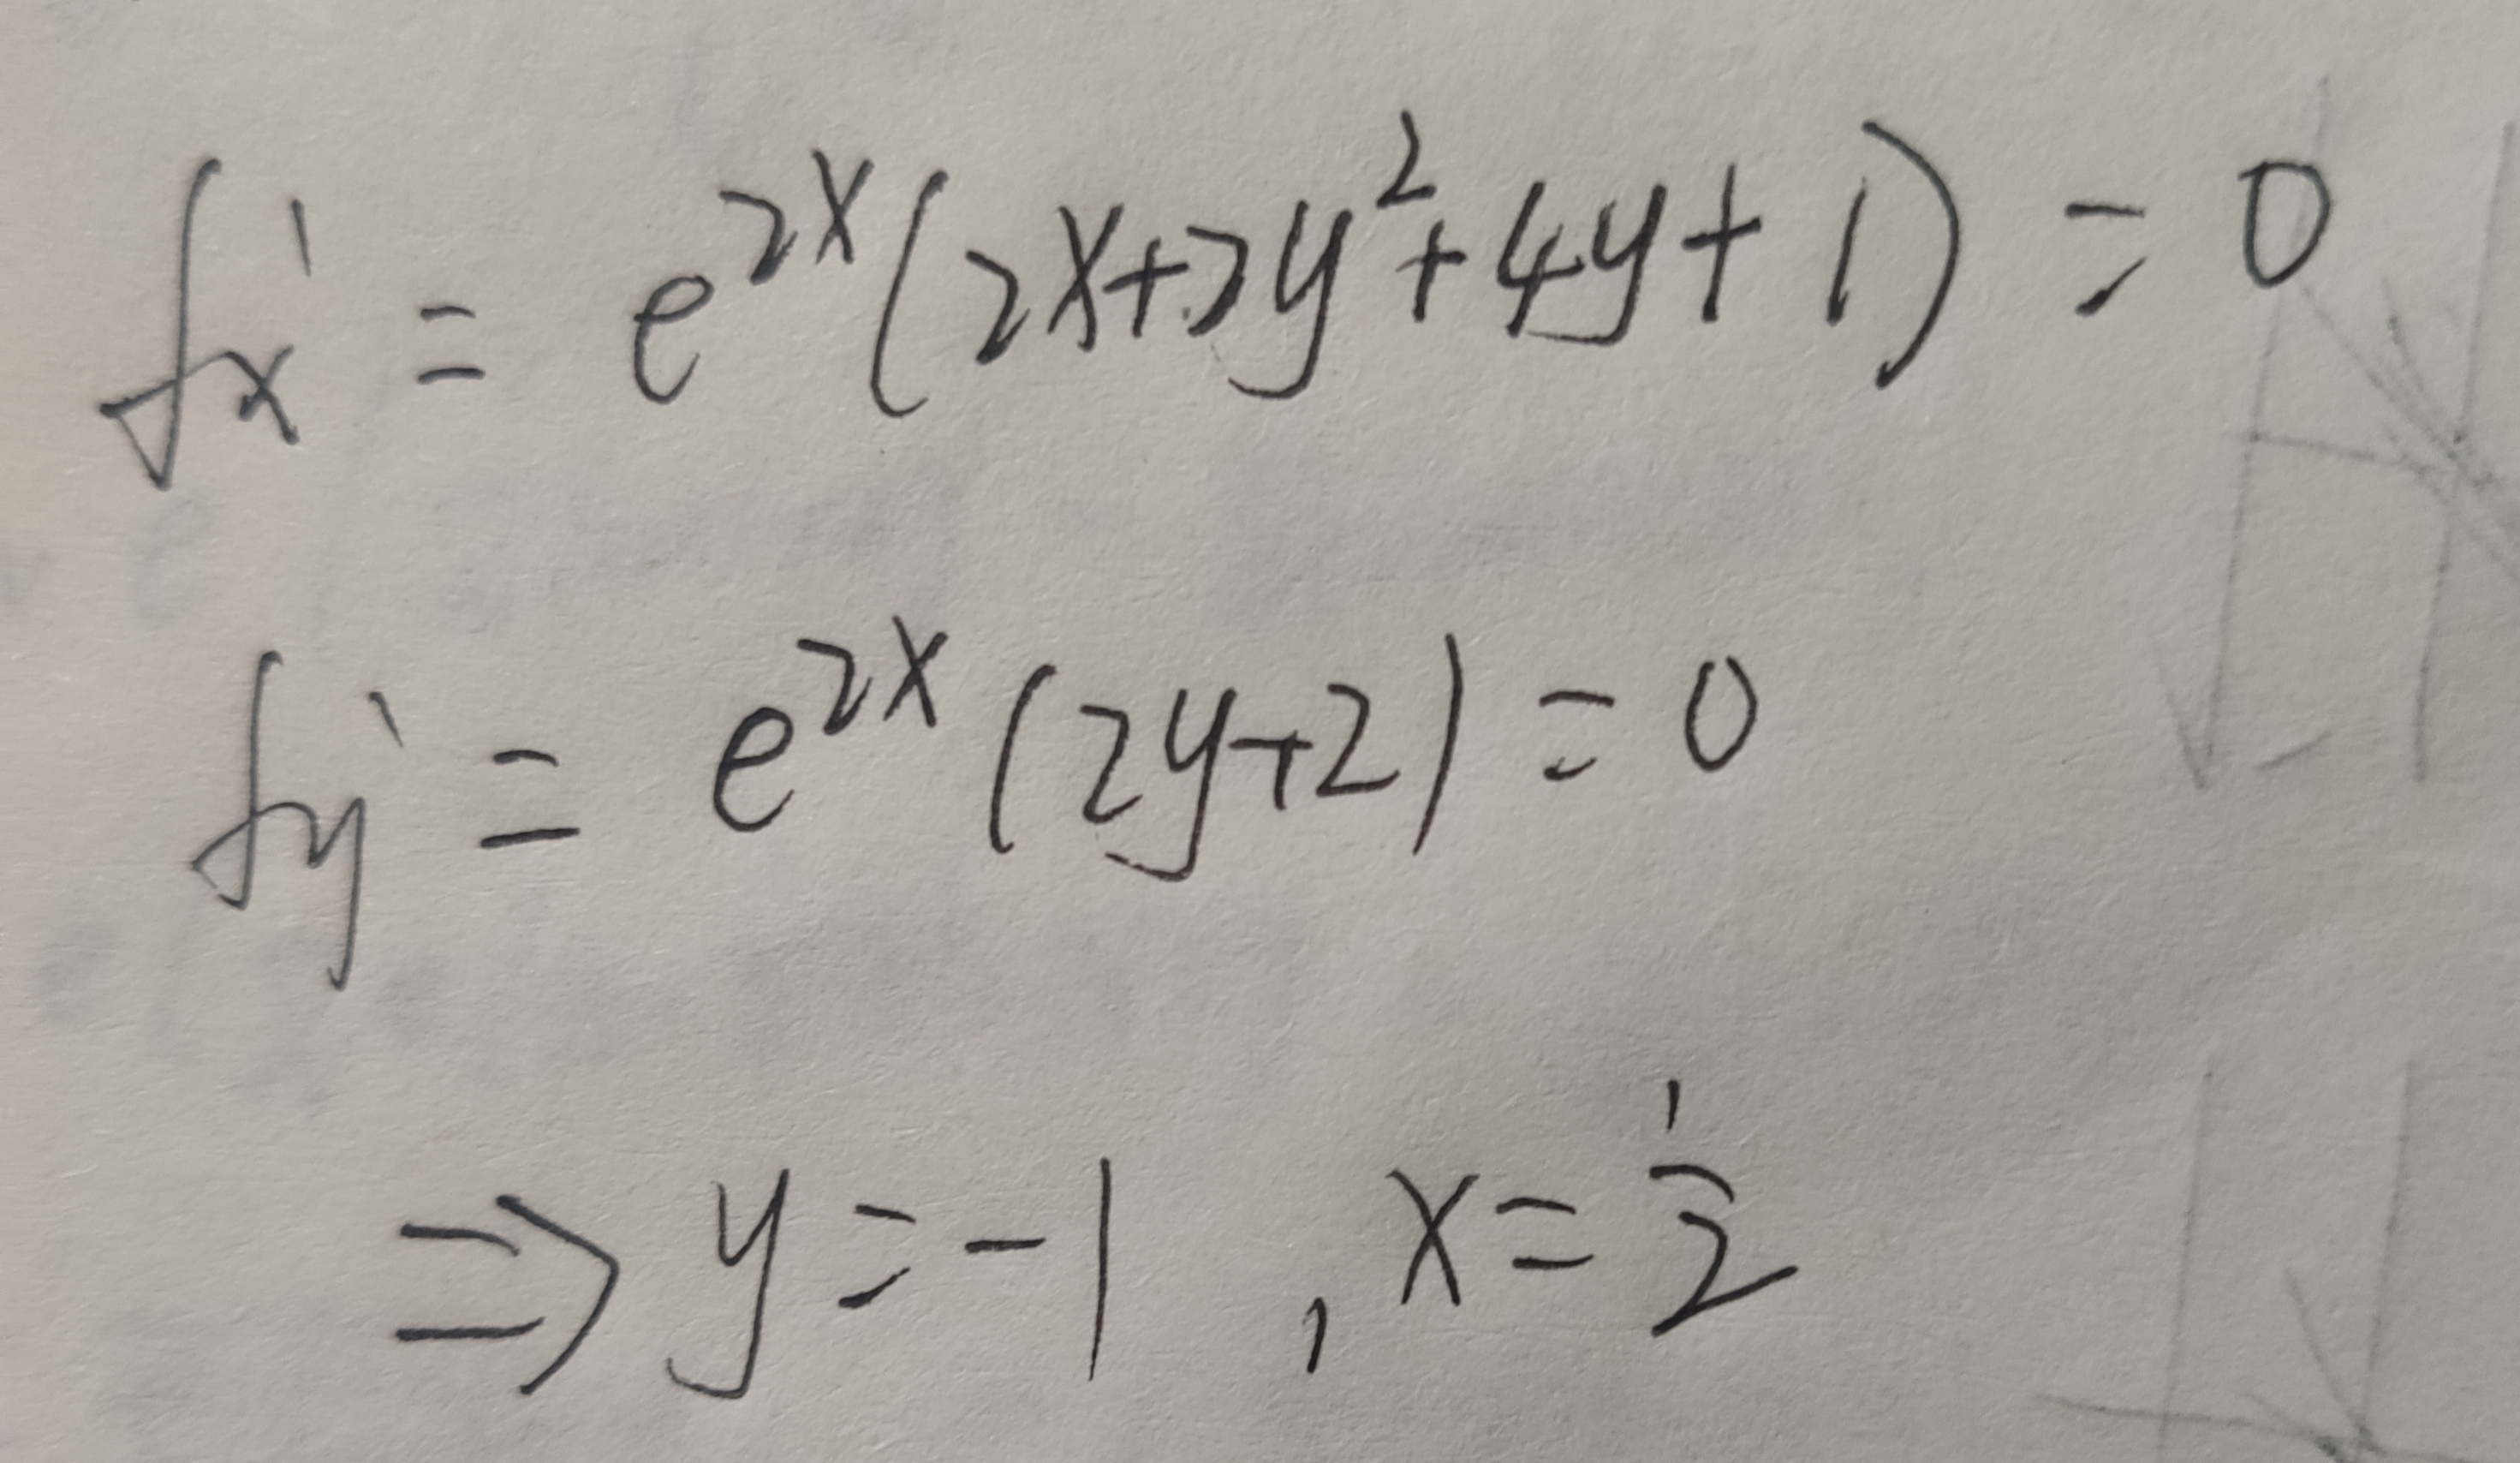 fx' = e^{2x}(2x+2y²+4y+1) = 0
fy' = e^{2x}(2y+2) = 0
⇒ y = -1 , x = 1/2